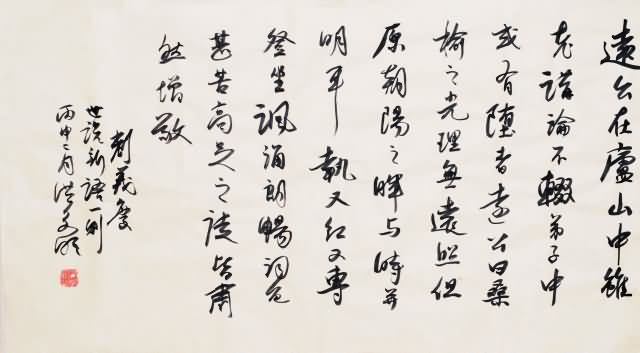 遠公在廬山中雖
老講論不輟弟子中
或有堕者遠公曰桑
榆之光理無遠照但
原朝陽之暉与時并
明耳執又红又專
登坐諷誦朗暢詞色
甚苦高足之徒皆肅
然增敬
劉義慶
世说新語一則
丙申二月洪